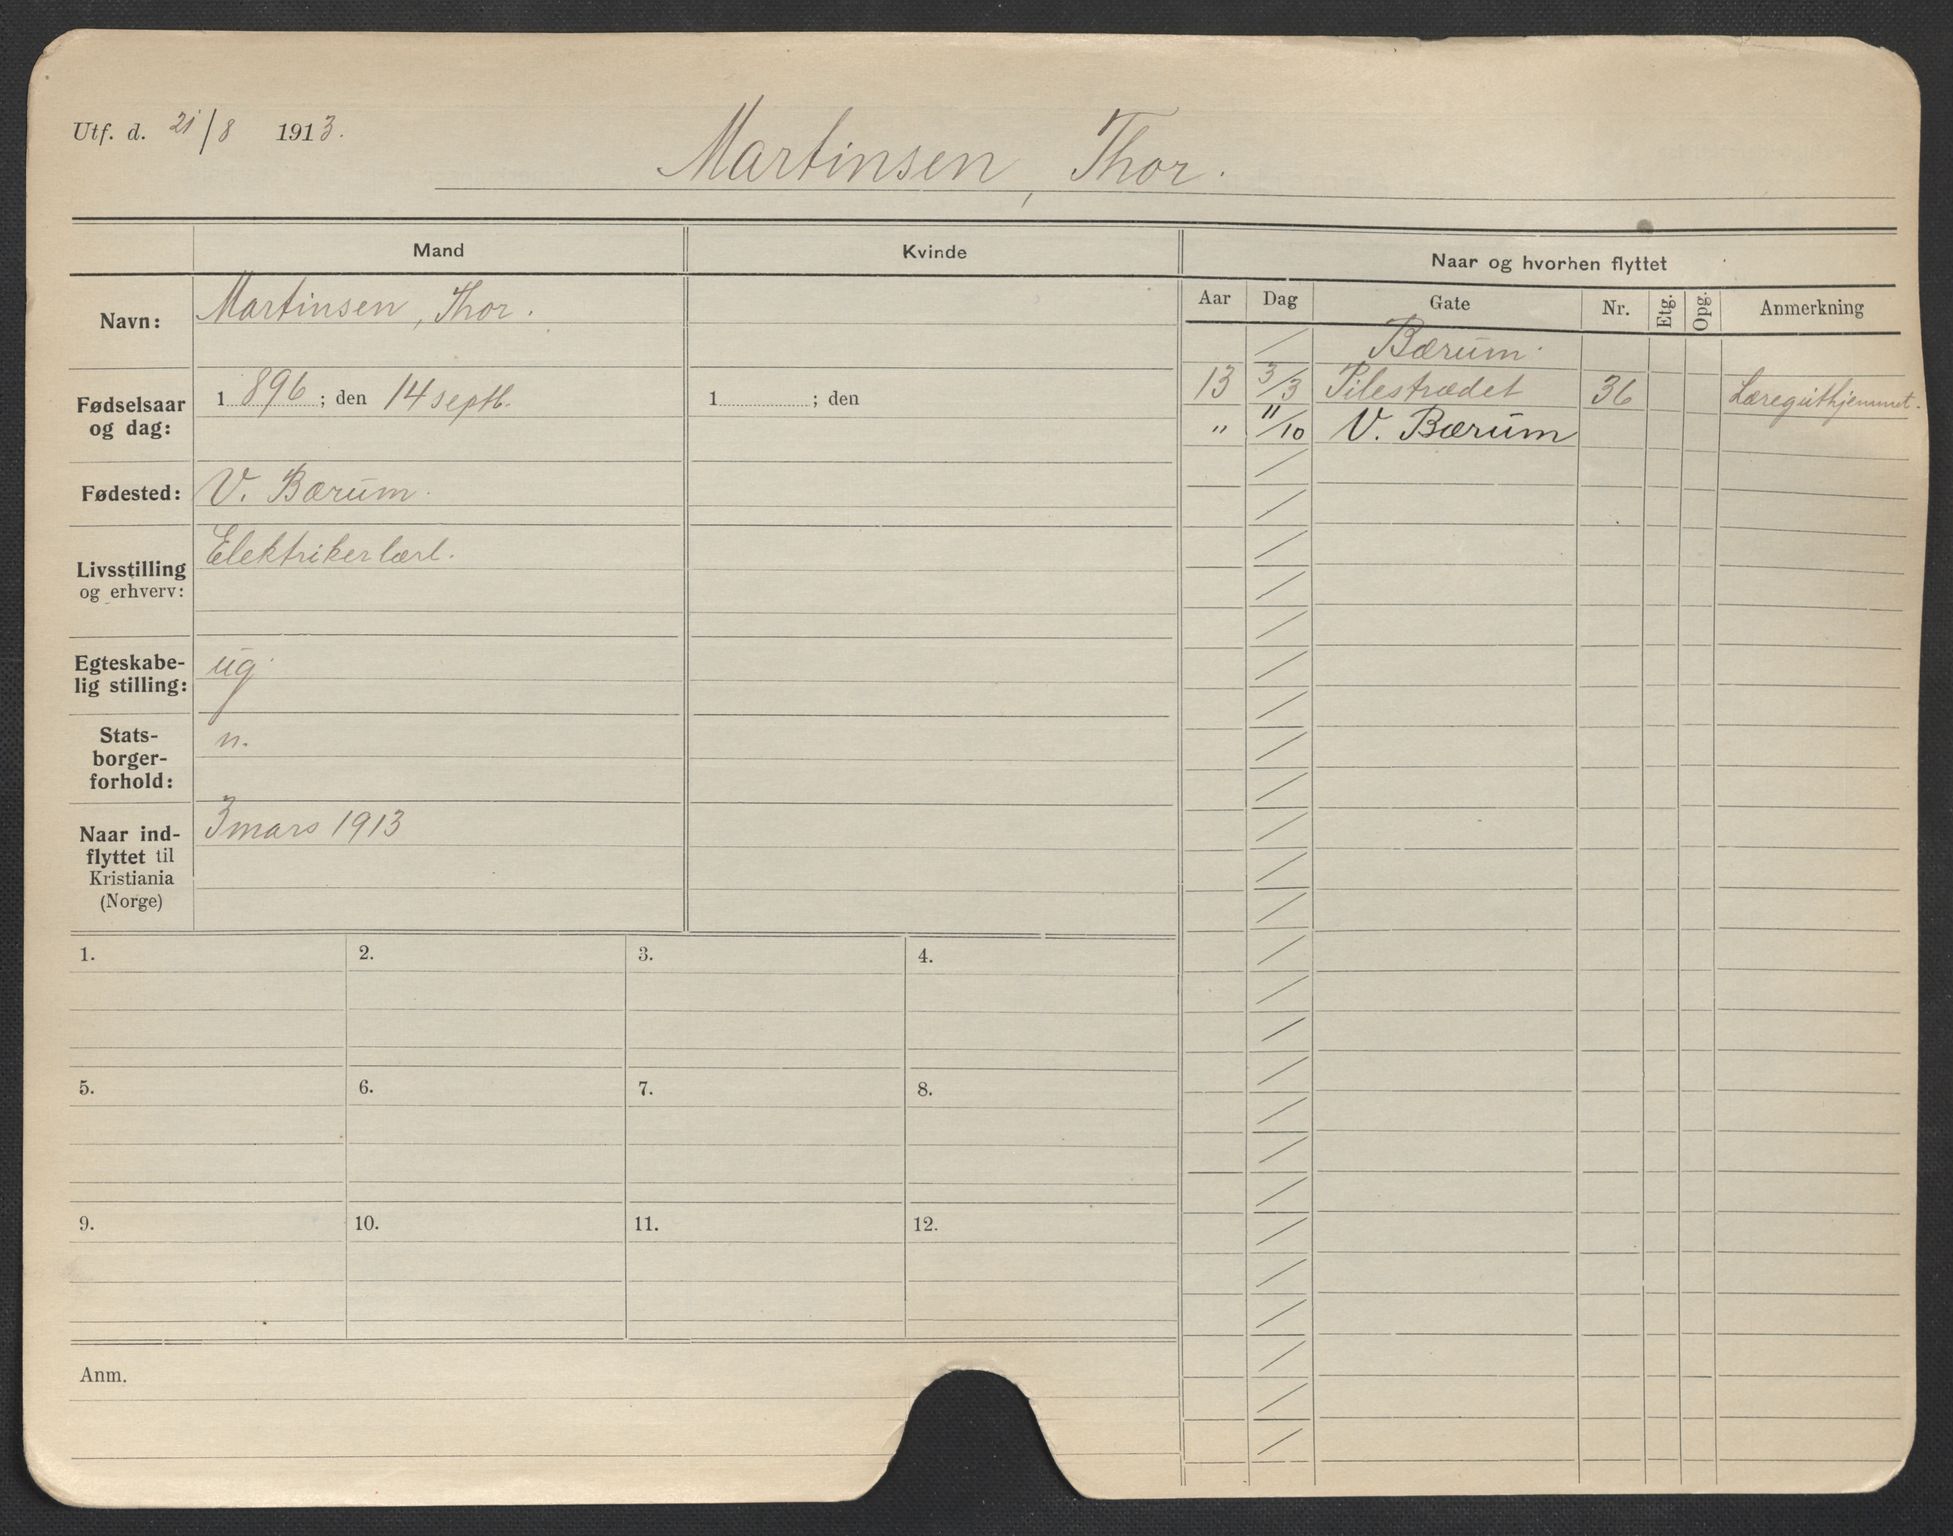 Utf. d. 21/8 1913.
Martinsen, Thor.
Mand
Kvinde
Naar og hvorhen flyttet
Navn: Martinsen, Thor.
Fødselsaar og dag: 1896; den 14 septb. 1 ; den
Fødested: V. Bærum.
Livsstilling og erhverv: Elektrikerlærl.
Egteskabe-
lig stilling: ug.
Stats-
borger-
forhold: n.
Naar ind-
flyttet til
Kristiania
(Norge) 3 mars 1913
Aar Dag Gate Nr. Etg. Opg. Anmerkning
/ Bærum.
13 3/3 Pilestrædet 36 Læreguthjemmet.
" 11/10 V. Bærum
1. 2. 3. 4.
5. 6. 7. 8.
9. 10. 11. 12.
Anm.